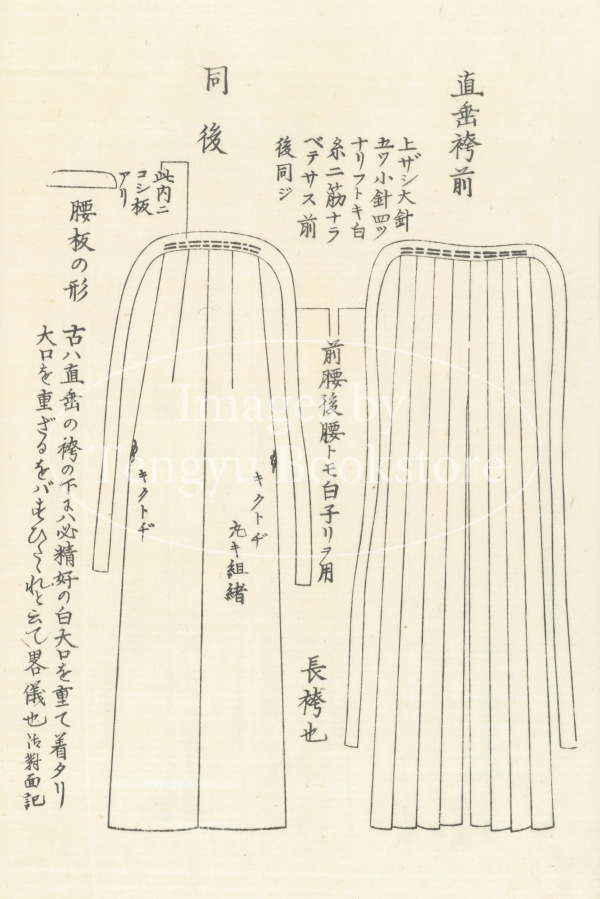 直垂袴前
上ザシ大針
五ツ小針四ツ
ナリフトキ白
糸二筋ナラ
ベテサス前
後同ジ
前腰後腰トモ白子リヲ用
長袴也
同後
此内ニ
コシ板
アリ
腰板の形
キクトヂ
丸キ組緒
キクトヂ
古ハ直垂の袴の下にハ必精好の白大口を重て着タリ
大口を重ざるをバすひたれと云て畧儀也
對面記
Images by
Tengyu Bookstore